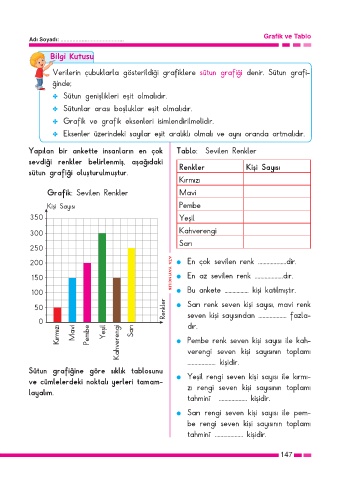 Adı Soyadı: ..........................................
Grafik ve Tablo
Bilgi Kutusu
Verilerin çubuklarla gösterildiği grafiklere sütun grafiği denir. Sütun grafi-
ğinde;
Sütun genişlikleri eşit olmalıdır.
Sütunlar arası boşluklar eşit olmalıdır.
Grafik ve grafik eksenleri isimlendirilmelidir.
Eksenler üzerindeki sayılar eşit aralıklı olmalı ve aynı oranda artmalıdır.
Yapılan bir ankette insanların en çok
sevdiği renkler belirlenmiş, aşağıdaki
sütun grafiği oluşturulmuştur.
Grafik: Sevilen Renkler
Kişi Sayısı
350
300
250
200
150
100
50
0
Kırmızı
Mavi
Pembe
Yeşil
Kahverengi
Sarı
Renkler
Sütun grafiğine göre sıklık tablosunu
ve cümlelerdeki noktalı yerleri tamam-
layalım.
Tablo: Sevilen Renkler
Renkler Kişi Sayısı
Kırmızı
Mavi
Pembe
Yeşil
Kahverengi
Sarı
En çok sevilen renk ..................dir.
En az sevilen renk ..................dır.
Bu ankete ............... kişi katılmıştır.
Sarı renk seven kişi sayısı, mavi renk
seven kişi sayısından .................. fazla-
dır.
Pembe renk seven kişi sayısı ile kah-
verengi seven kişi sayısının toplamı
.................. kişidir.
Yeşil rengi seven kişi sayısı ile kırmı-
zı rengi seven kişi sayısının toplamı
tahminî .................. kişidir.
Sarı rengi seven kişi sayısı ile pem-
be rengi seven kişi sayısının toplamı
tahminî .................. kişidir.
147